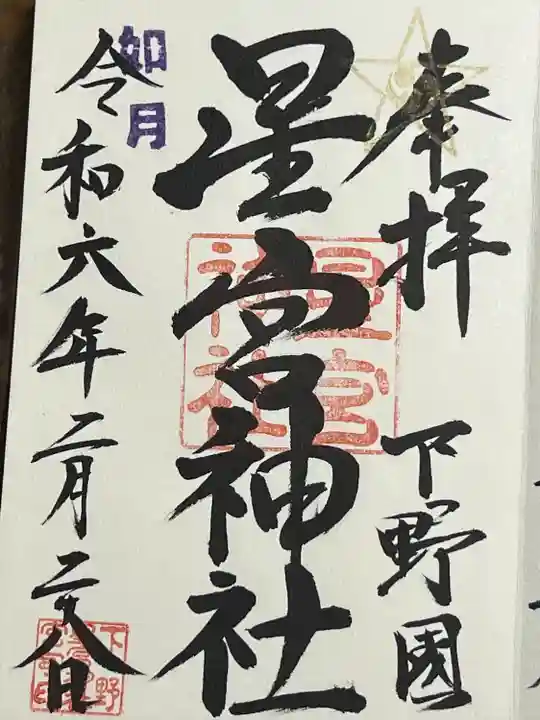 奉拝 下野國
星宮神社
星宮神社
如月
令和六年二月二十八日
下野